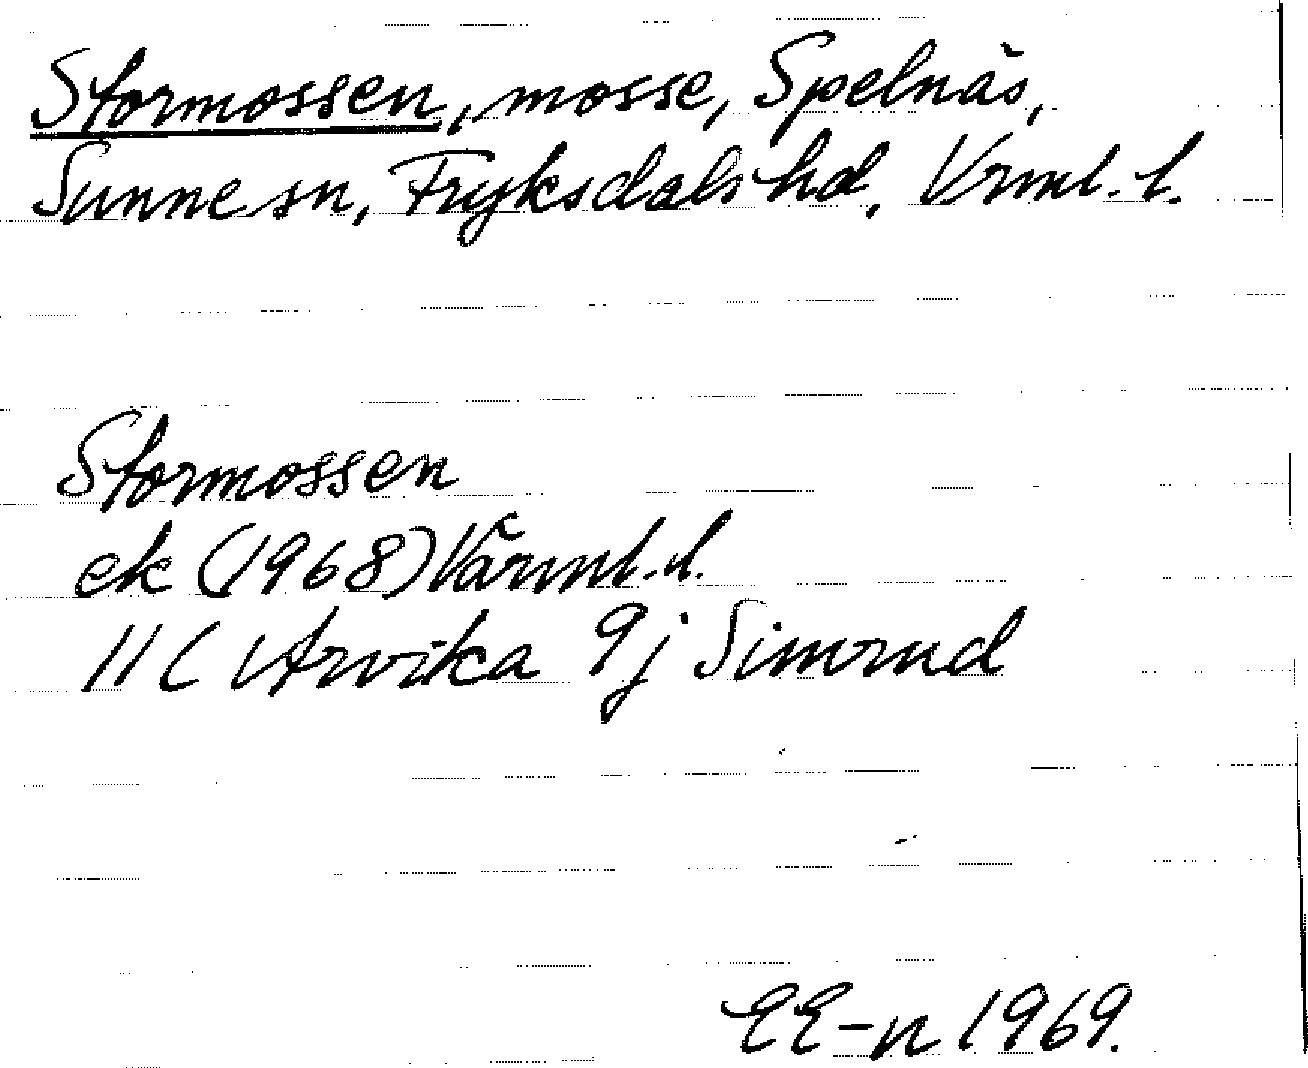 Stormossen, mosse, Spelnäs,
Sunne sn, Fryksdals hd, Vrml. l.
Stormossen
ek (1968) Värml. l.
11 C Arvika 9j Simrud
EE-n 1969.